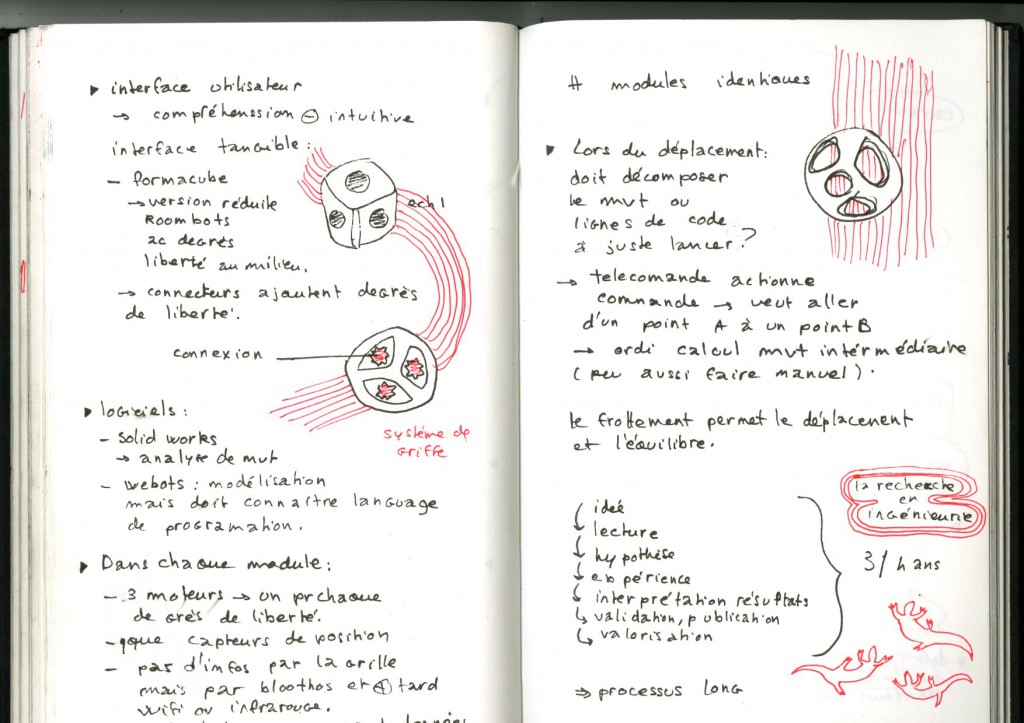 ▸ interface utilisateur
→ compréhenssion ⊖ intuitive
interface tangible :
– formacube
→ version réduite
Roombots
2c degrés
liberté au milieu.
→ connecteurs ajoutent degrès
de liberté.
ech 1
connexion
système de
griffe
▸ logiciels :
– Solid works
→ analyse de mvt
– webots : modélisation
mais doit connaitre language
de programation.
▸ Dans chaque module :
– 3 moteurs → un pr chaque
de grès de liberté.
– que capteurs de position
– pas d'infos par la grille
mais par bloothos et ⊕ tard
wifi ou infrarouge.
# modules identiques
▸ Lors du déplacement :
doit décomposer
le mvt ou
lignes de code
à juste lancer ?
→ telecomande actionne
commande → veut aller
d'un point A à un point B
→ ordi calcul mvt intérmédiaire
(peu aussi faire manuel).
le frottement permet le déplacement
et l'équilibre.
idée
lecture
hypothèse
expérience
interprétation résultats
validation, publication
valorisation
⇒ processus long
la recherche
en
ingénieurie
3/4 ans